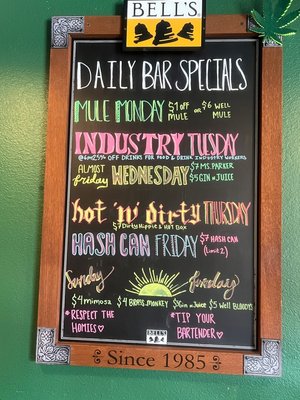 BELL'S
DAILY BAR SPECIALS
MULE MONDAY $1 off MULE OR $6 WELL MULE
INDUSTRY TUESDAY
OFF DRINKS FOR FOOD & DRINK INDUSTRY WORKERS
ALMOST friday WEDNESDAY $7 MS. PARKER
$5 GIN n' JUICE
hot 'n' dirty THURSDAY
$7 Dirty Hippie & HOT BOX
HASH CAN FRIDAY $7 HASH CAN
(Limit 2)
Sunday Funday
$4 mimosa $4 BRASS MONKEY $6 Gin n' Juice $5 Well BLOODYS
*RESPECT THE HOMIES♡ *TIP YOUR BARTENDER♡
BELL'S
Since 1985